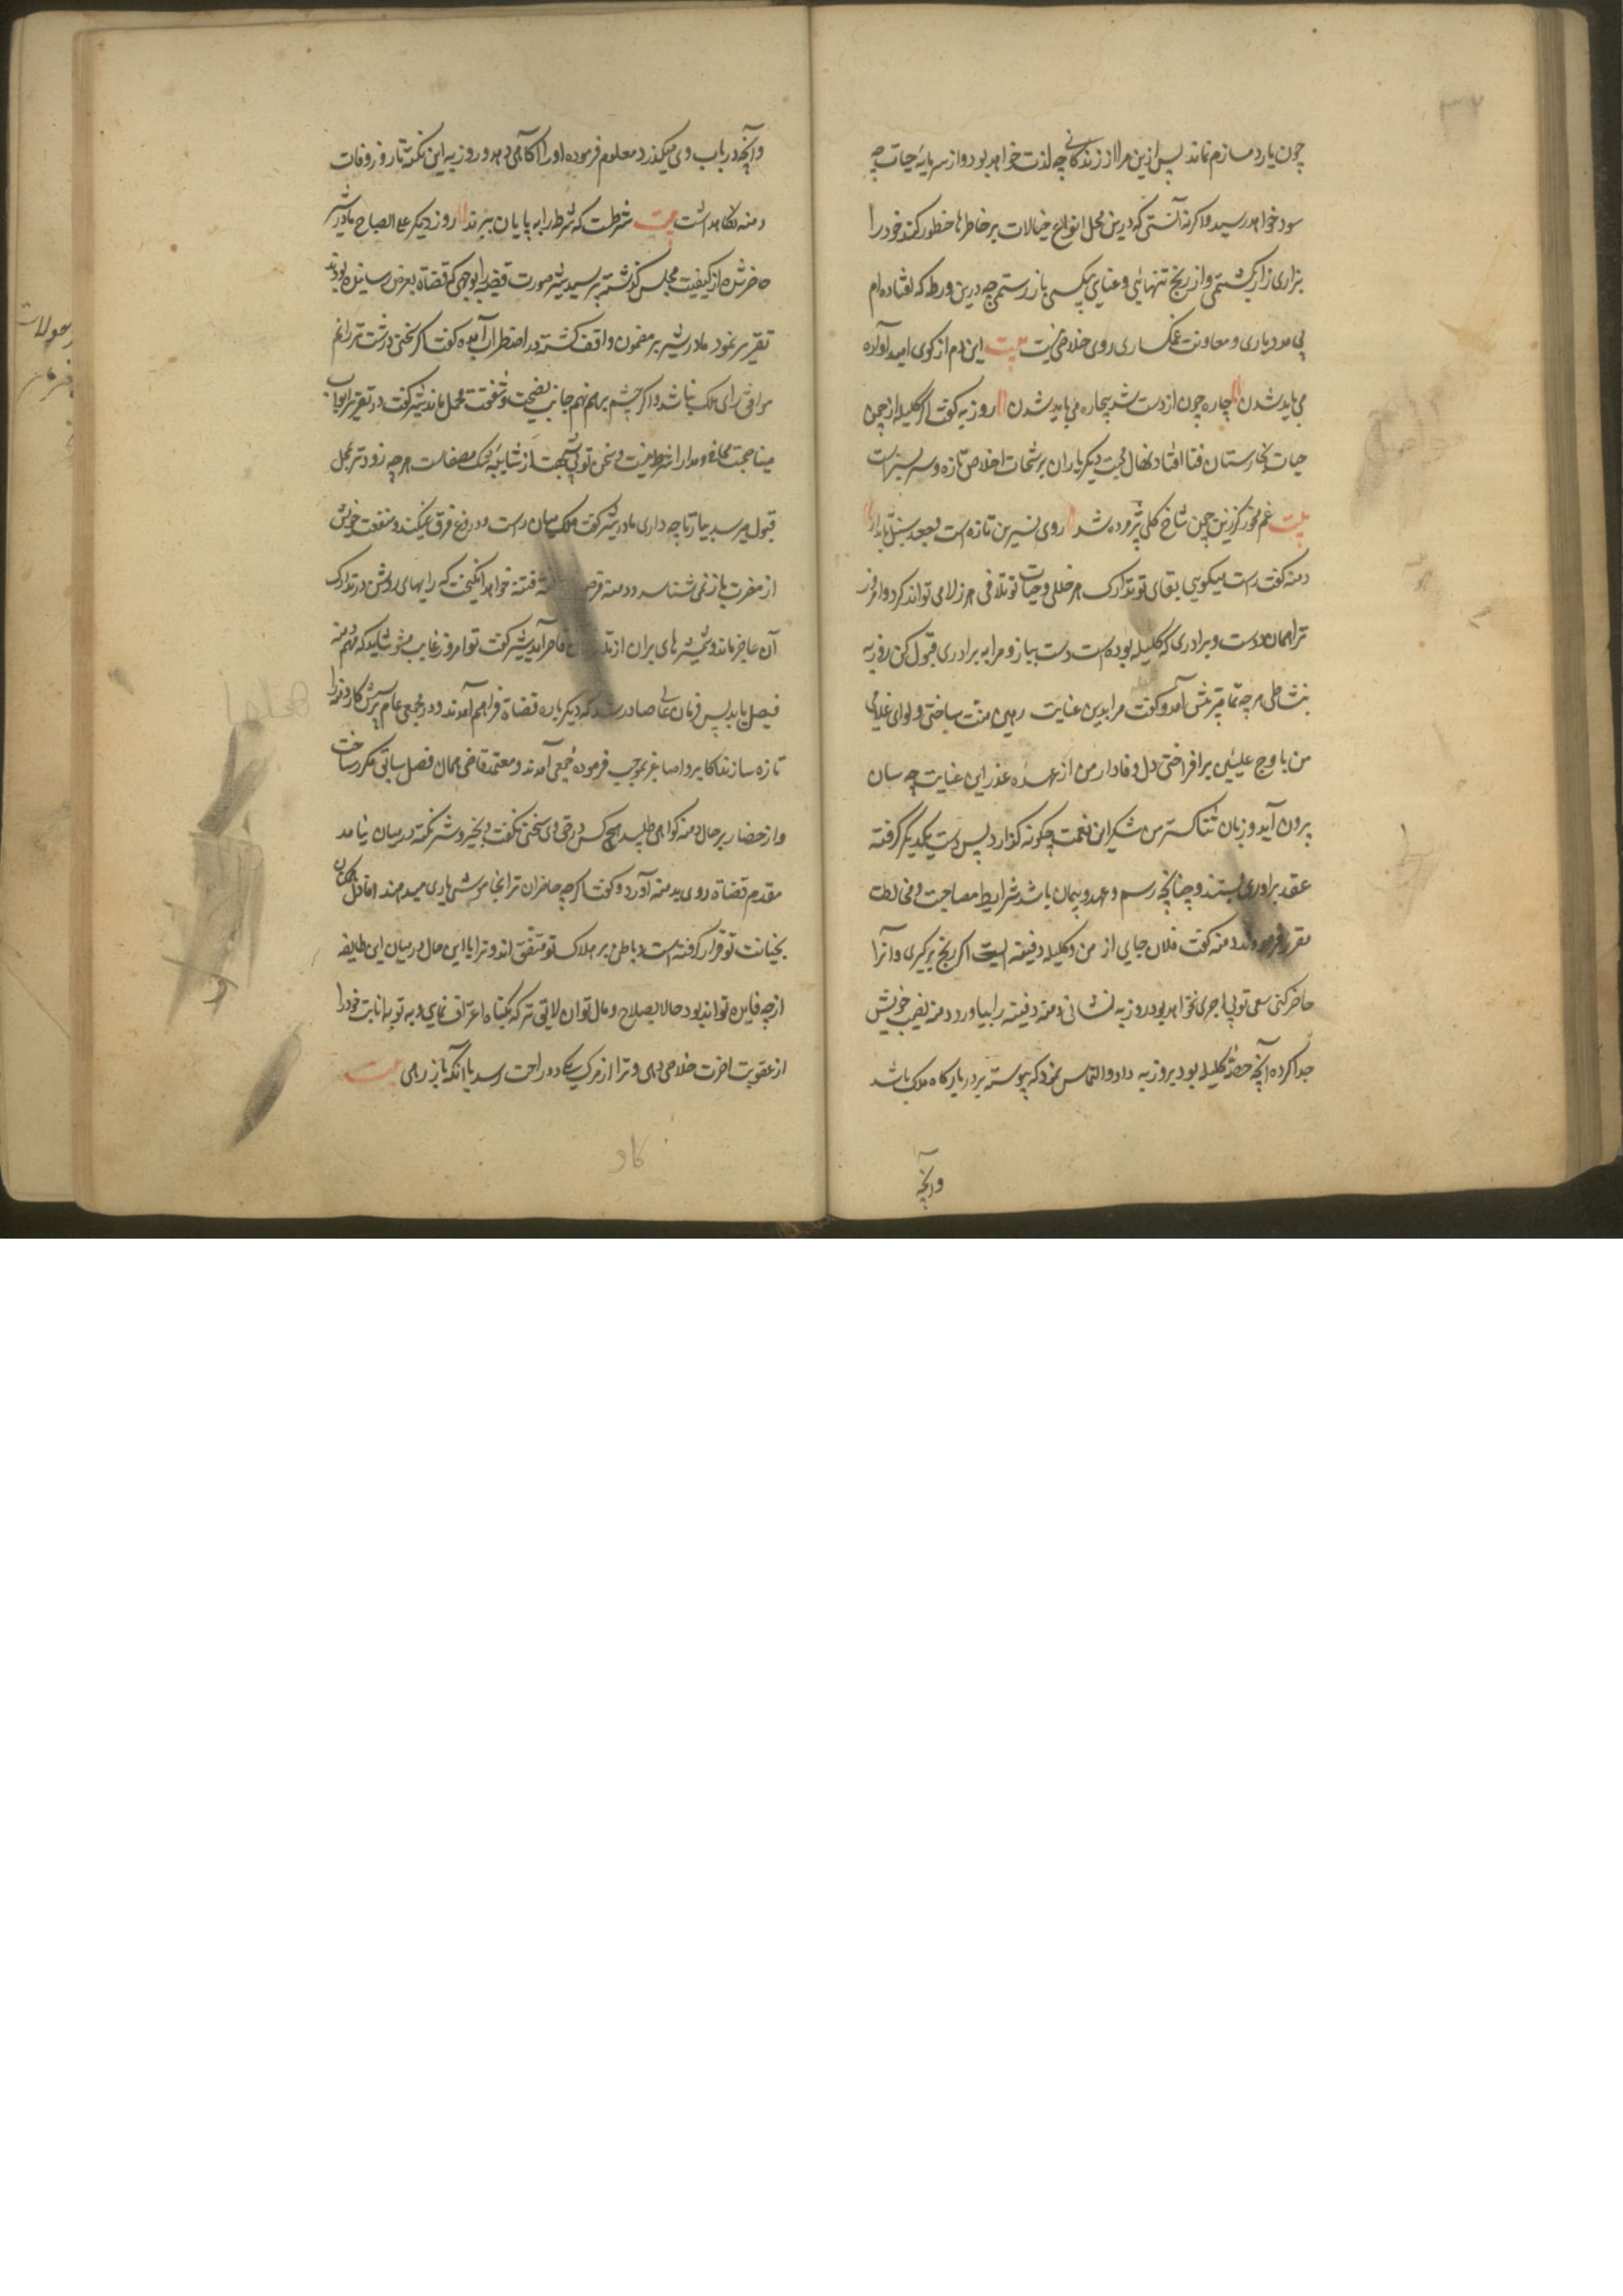 چون یار دمسازم نماند پس ازین مرا از زندگانی چه لذت خواهد بود و از سرمایه حیات چه
سود خواهد رسید و اگر نه آنستی که درین محل انواع خیالات بر خاطرها خطور کند خود را
بزاری زار بکشتمی و از رنج تنهایی و عنای بیکسی باز رستمی چه درین ورطه که افتاده ام
بی مدد یاری و معاونت غمگساری روی خلاصی نیست بیت این دم از کوی امید آواره
می باید شدن چاره چون از دست شد بیچاره می باید شدن روزبه گفت اگر کلیله از چمن
حیات بخارستان فنا افتاد نهال محبت دیگر یاران برشحات اخلاص تازه و سرسبز است
بیت غم مخور گر زین چمن شاخ گلی پژمرده شد روی نسرین تازه است و جعد سنبل تابدار
دمنه گفت راست میگویی بقای تو تدارک هر خللی و حیات تو تلافی هر زللی می تواند کرد و امروز
تو همان دوست و برادری که کلیله بوده است دست بیار و مرا به برادری قبول کن روزبه
بنشاطی هر چه تمامتر پیش آمد و گفت مرا بدین عنایت رهین منت ساختی و لوای غلامی
من باوج علیین برافراختی دل وفادار من از عهده عذر این عنایت چه سان
برون آید و زبان ثناگستر من شکر این نعمت چگونه گذارد پس دست یکدیگر گرفته
عقد برادری بستند و چنانچه رسم و عهد و پیمان باشد شرایط مصاحبت و مخالطت
مقرر فرمودند دمنه گفت فلان جای از من و کلیله دفینه ایست اگر رنج برگیری و آنرا
حاضر کنی سعی تو بی اجری نخواهد بود روزبه بنشانی دمنه دفینه را بیاورد دمنه نصیب خویش
جدا کرده آنچه حصه کلیله بود بروزبه داد و التماس نمود که پیوسته بر در بارگاه ملک باشد
وآنچه
وآنچه در باب وی میگذرد معلوم فرموده او را آگاهی دهد و روزبه این نکته تا روز وفات
دمنه نگاه داشت بیت شرطست که شرط را به پایان ببرند روز دیگر علی الصباح مادر شیر
حاضر شده از کیفیت مجلس گذشته پرسید شیر صورت قضیه را بوجهی که قضاة بعرض رسانیده بودند
تقریر نمود مادر شیر بر مضمون واقف گشته در اضطراب آمده گفت اگر سخنی درشت تر رانم
موافق رای ملک نباشد و اگر چشم برهم نهم جانب نصیحت و شفقت مهمل ماند شیر گفت در تقریر ابواب
مناصحت محابا و مدارا شرط نیست و سخن تو بی شبهت از شایبه شک مصفاست هر چه زودتر بمحل
قبول میرسد بیار تا چه داری مادر شیر گفت ملک میان راست و دروغ فرق نمیکند و منفعت خویش
از مضرت باز نمی شناسد و دمنه فرصت یافته فتنه خواهد انگیخت که رایهای روشن در تدارک
آن عاجز ماند و شمشیرهای بران از تدبیر آن قاصر آید شیر گفت تو امروز غایب مشو شاید که مهم دمنه
فیصل یابد پس فرمان عالی صادر شد که دیگر باره قضاة فراهم آمدند و در مجمعی عام پرسش کار دمنه را
تازه سازند اکابر و اصاغر بموجب فرموده جمعی آمدند و معتمد قاضی همان فصل سابق مکرر ساخت
و از حضار بر حال دمنه گواهی طلبید هیچ کس در حق وی سخنی نگفت و بخیر و شر نکته در میان نیامد
مقدم قضاة روی بدمنه آورد و گفت اگر چه حاضران ترا بخاموشی یاری میدهند اما دل همگنان
بخیانت تو قرار گرفته است و باطن بر هلاک تو متفق اند و ترا با این حال در میان این طایفه
از چه فایده تواند بود حالا بصلاح و مآل تو آن لایق تر که بگناه اعتراف نمایی و به توبه انابت خود را
از عقوبت آخرت خلاصی دهی و ترا از مرگ یکی از دو راحت رسد یا آنکه باز رهی بیت
کاو